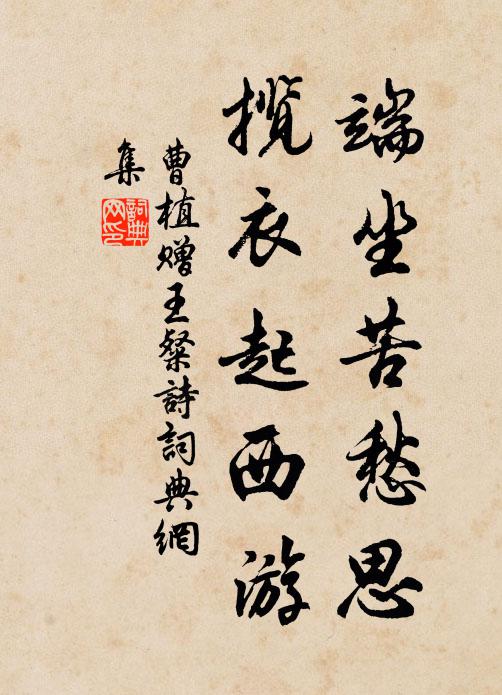 端坐苦愁思
攬衣起西游
曹植贈王粲詩詞典網
集
詞典
网印